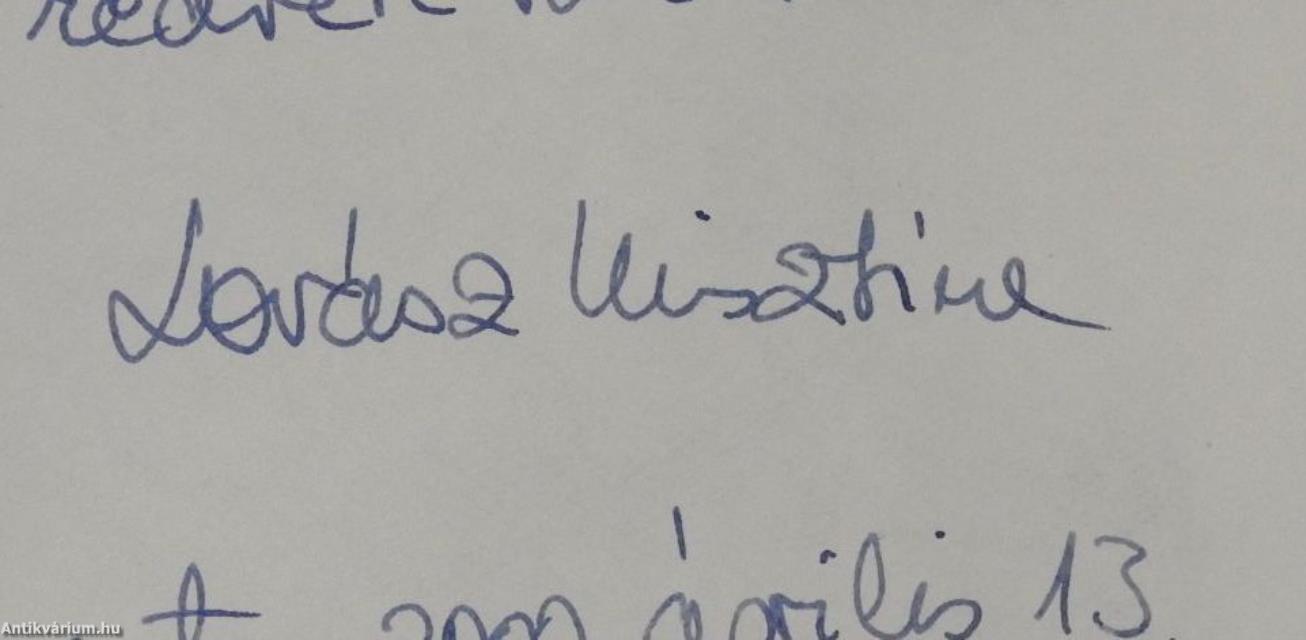 Lovász Krisztina
április 13.
Antikvárium.hu